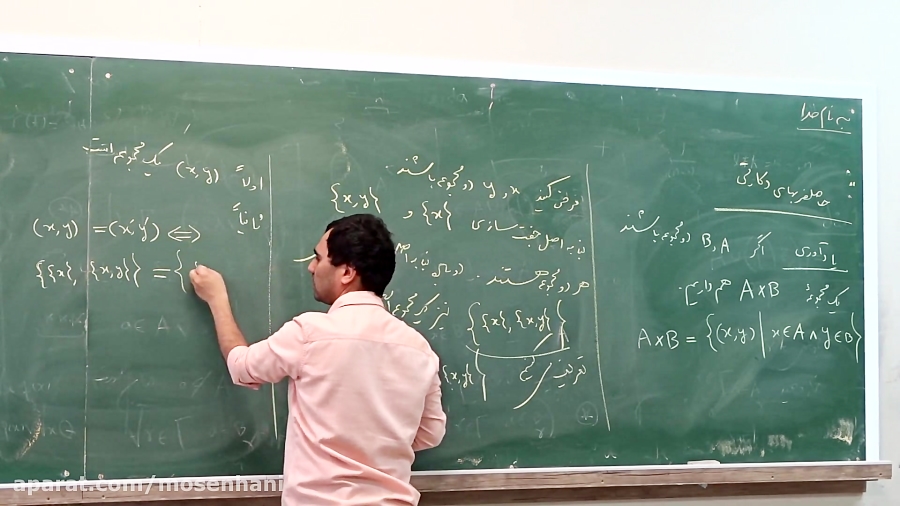 به نام خدا
حاصلضربهای دکارتی
یادآوری اگر B,A دو مجموعه باشند
یک مجموعهٔ A×B هم داریم.
A×B = {(x,y) | x∈A ∧ y∈B}
فرض کنید x و y دو مجموعه باشند.
بنابه اصل جفت سازی {x} و {x,y}
هر دو مجموعه هستند.
نیز یک مجموعه
{{x},{x,y}}
تعریف می‌کنیم
اولاً (x,y) یک مجموعه است
ثانیاً
(x,y) = (x',y') ⇔
{{x}, {x,y}} = {
aparat.com/mosenhani